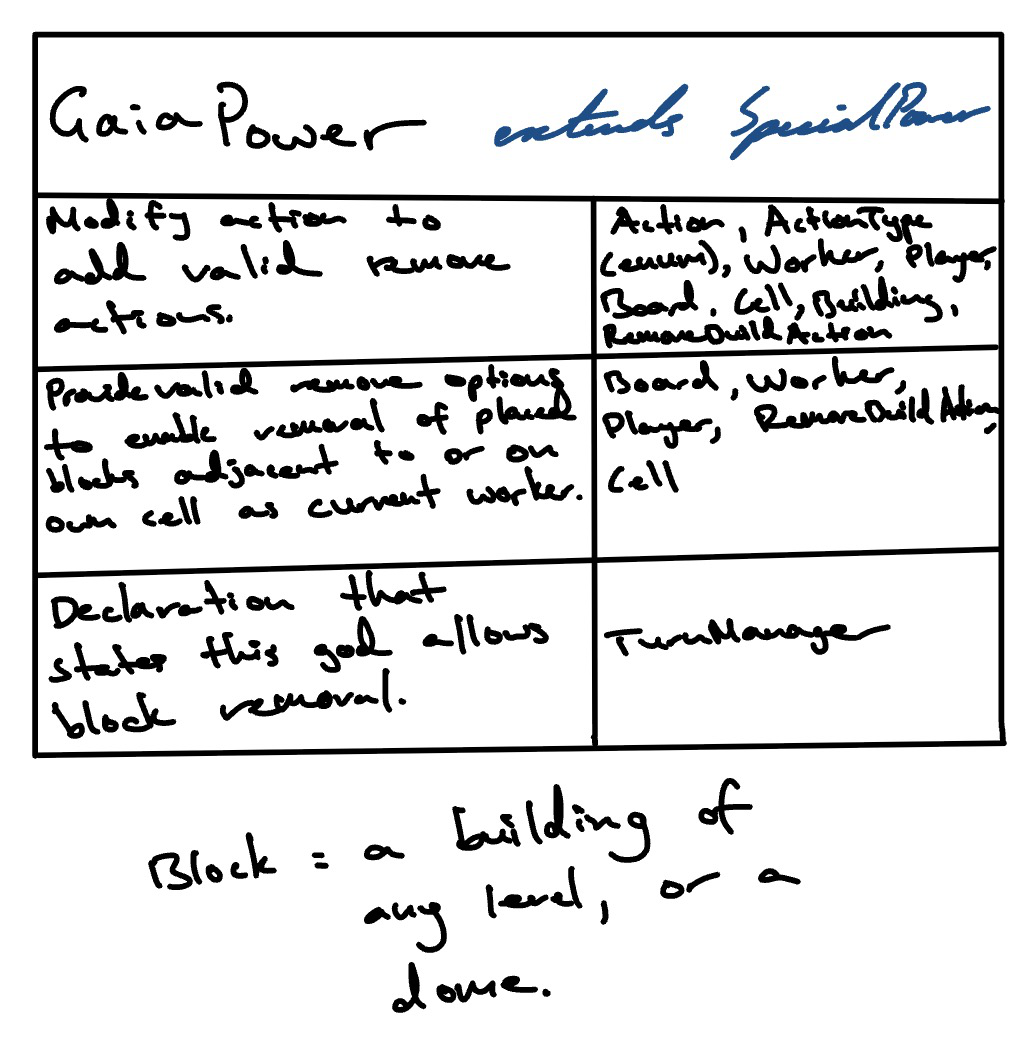 GaiaPower extends SpecialPower
Modify action to
add valid remove
actions.
Action, ActionType
(enum), Worker, Player,
Board, Cell, Building,
RemoveBuildAction
Provide valid remove options
to enable removal of placed
blocks adjacent to or on
own cell as current worker.
Board, Worker,
Player, RemoveBuildAction,
Cell
Declaration that
states this god allows
block removal.
TurnManager
Block = a building of
any level, or a
dome.